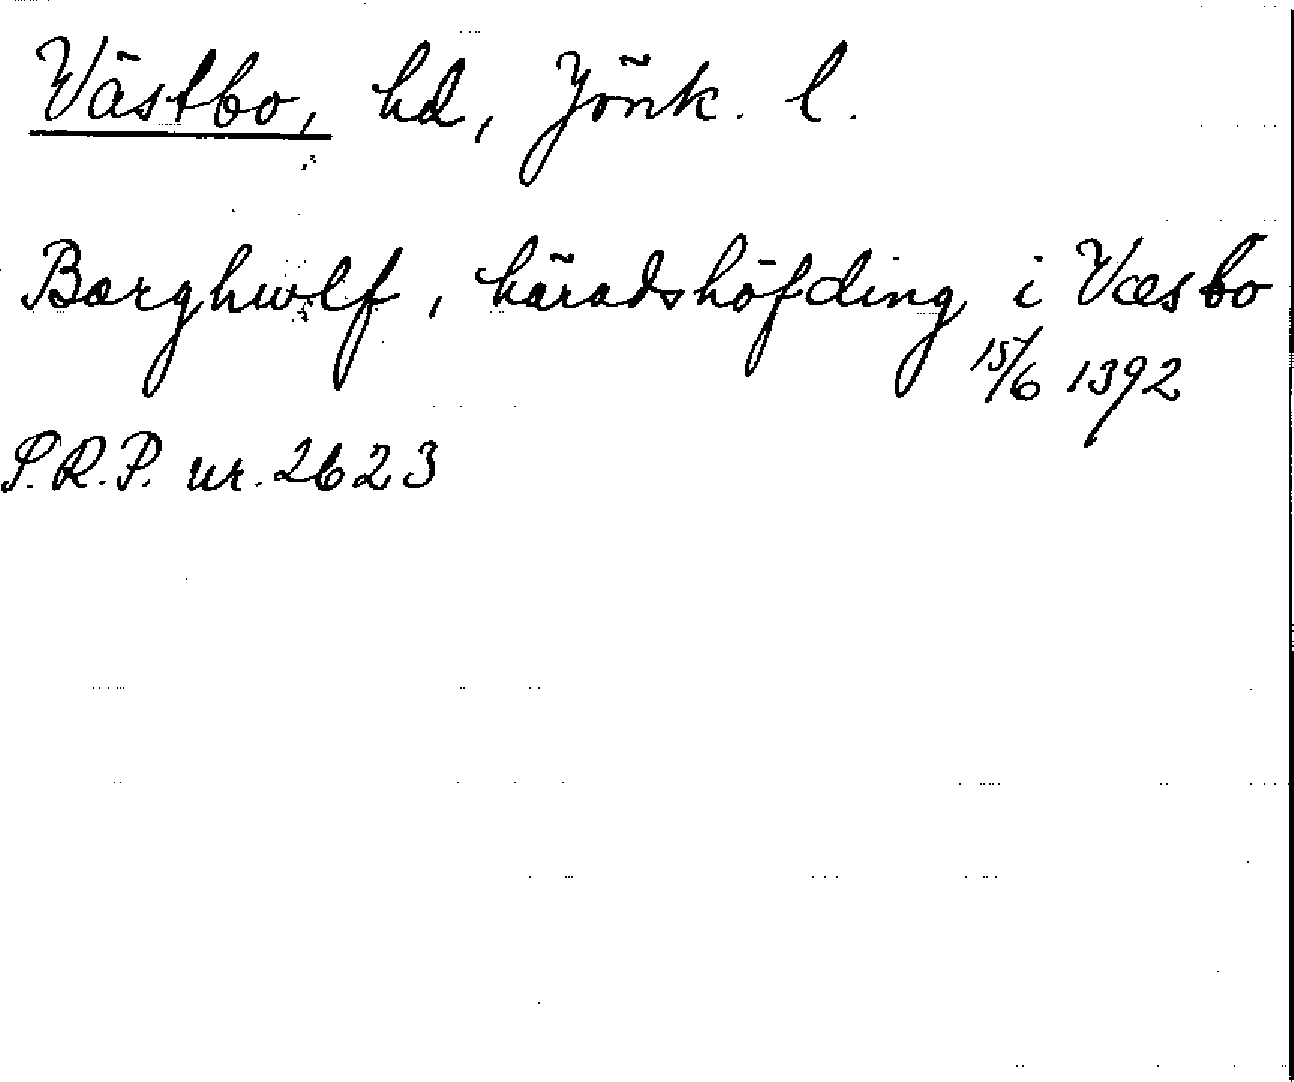 Västbo, hd, Jönk. l.
Bærghwlf, häradshöfding i Væsbo
15/6 1392
S.R.P. nr. 2623